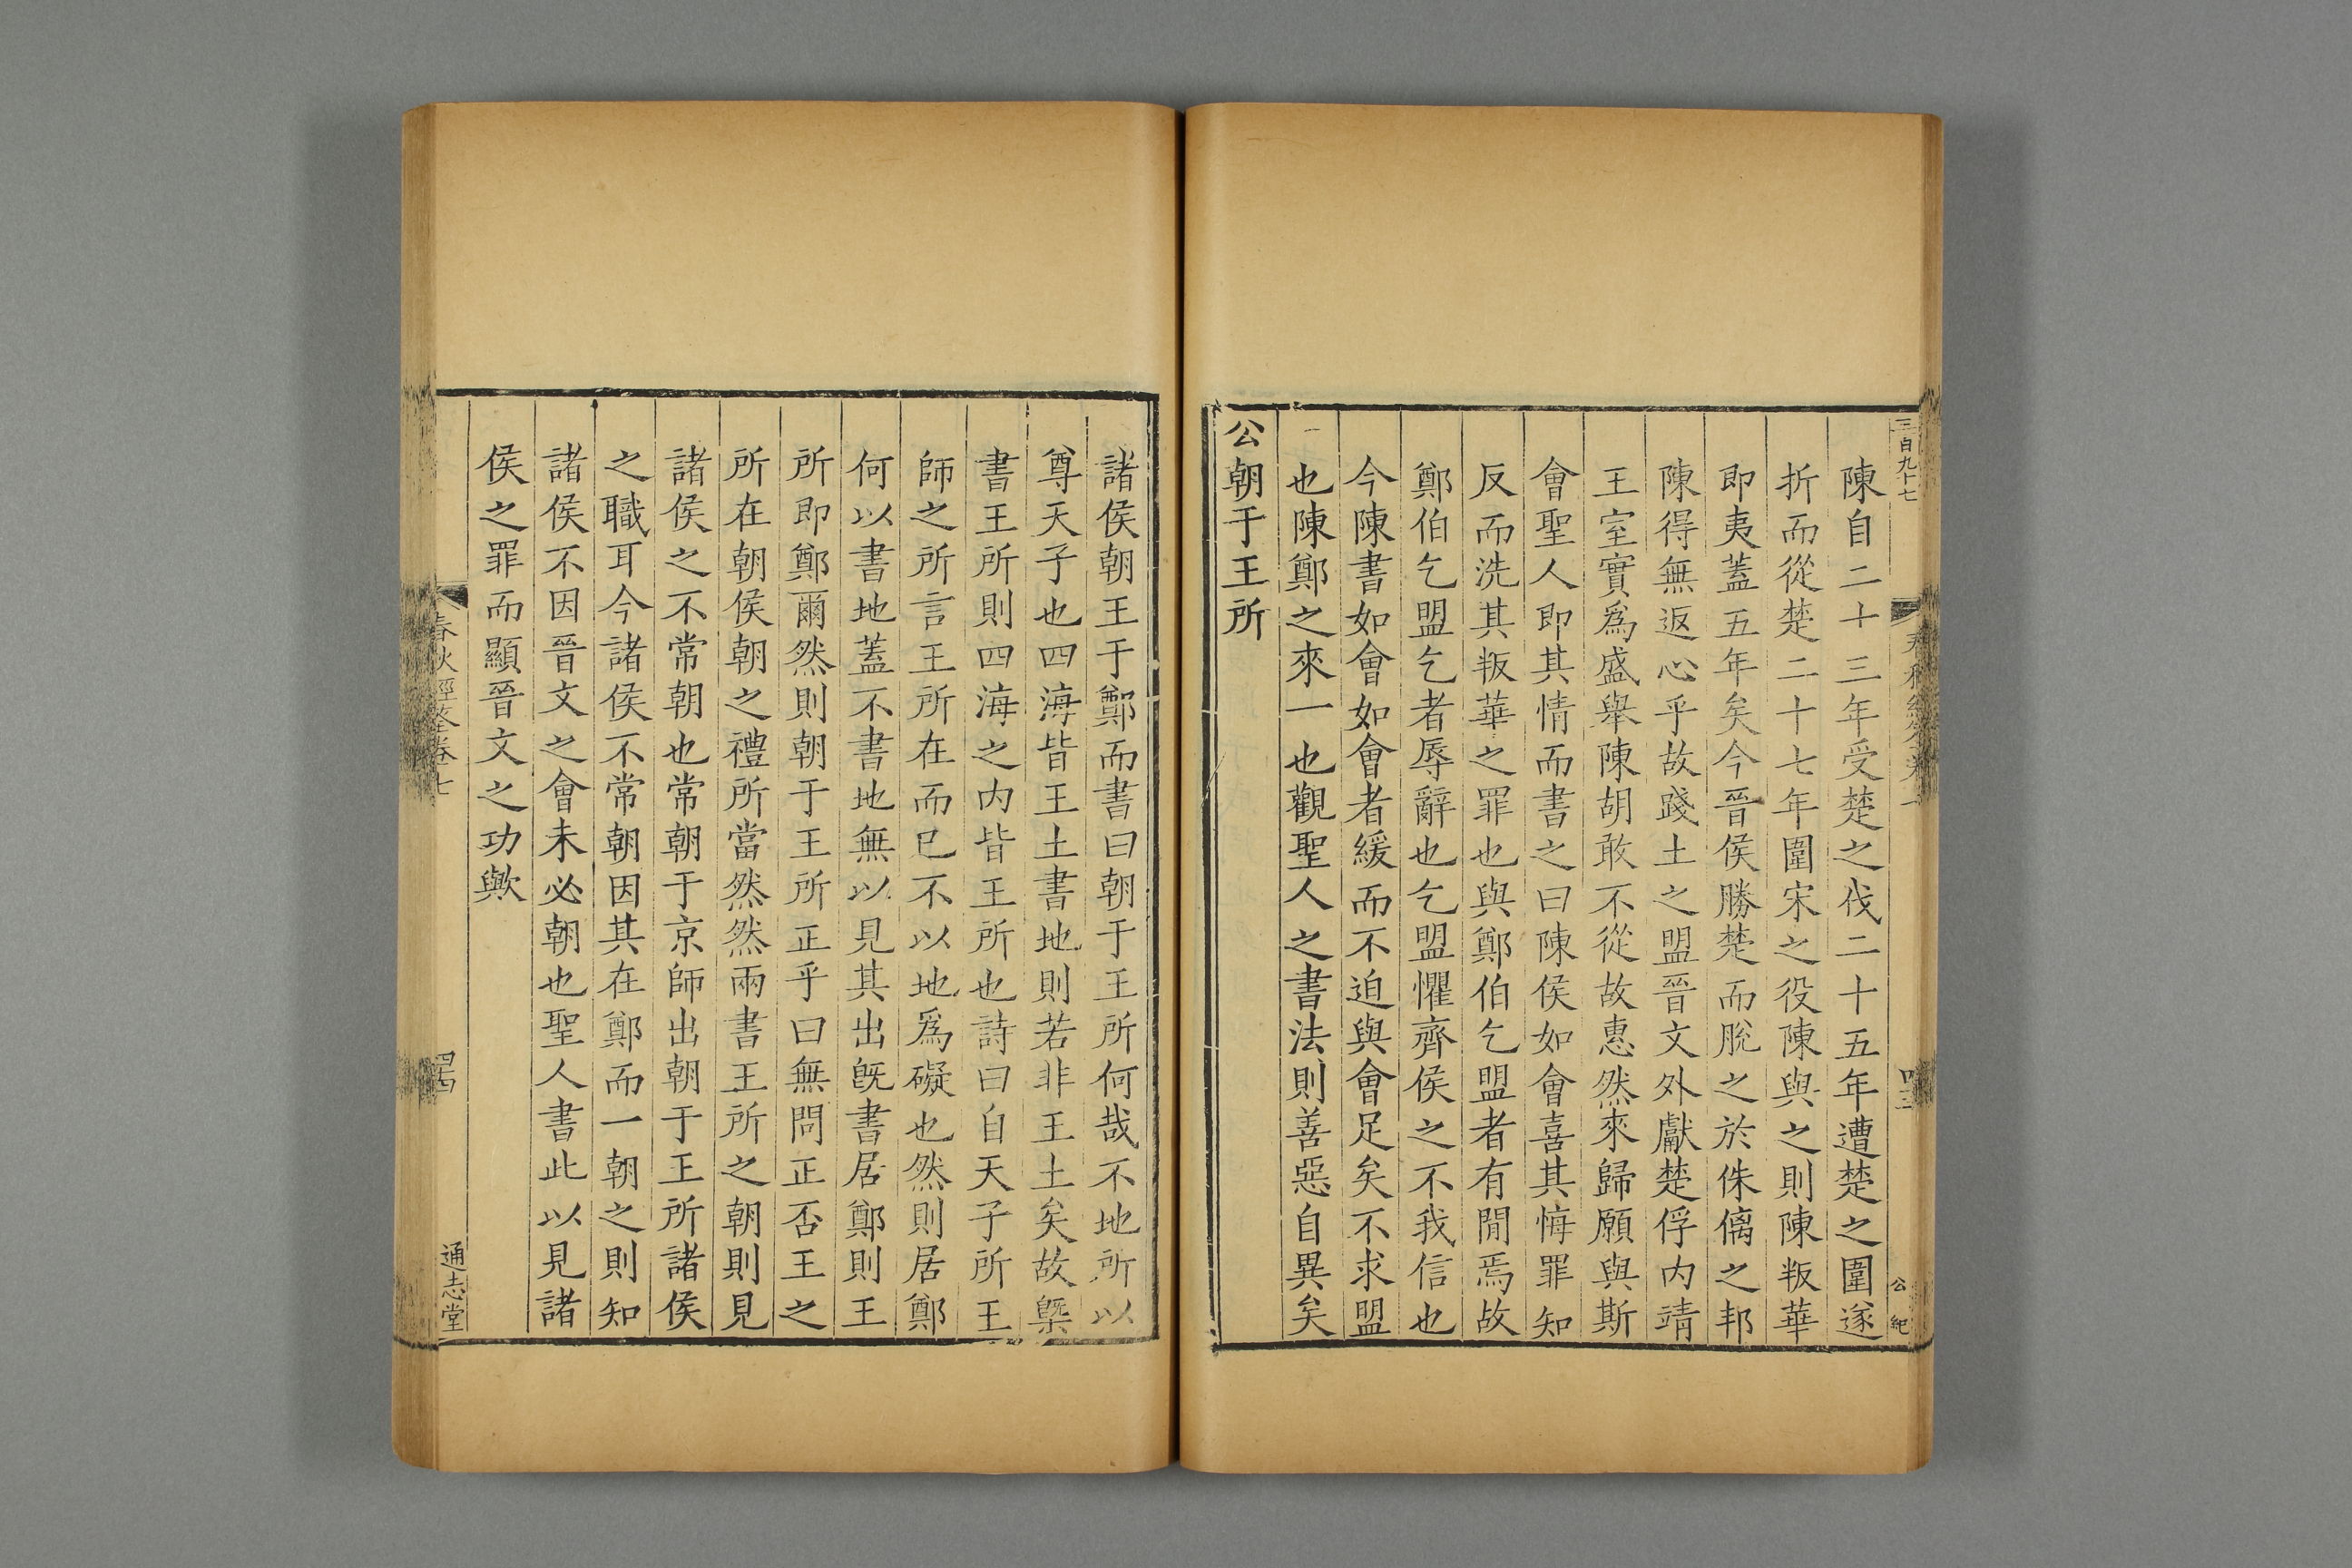 三百九十七
四三
公 紀
陳自二十三年受楚之伐二十五年遭楚之圍遂
折而從楚二十七年圍宋之役陳與之則陳叛華
即夷蓋五年矣今晉侯勝楚而脫之於侏僪之邦
陳得無返心乎故踐土之盟晉文外獻楚俘内靖
王室實爲盛舉陳胡敢不從故惠然來歸願與斯
會聖人即其情而書之曰陳侯如會喜其悔罪知
反而洗其叛華之罪也與鄭伯乞盟者有閒焉故
鄭伯乞盟乞者辱辭也乞盟懼齊侯之不我信也
今陳書如會如會者緩而不迫與會足矣不求盟
也陳鄭之來一也觀聖人之書法則善惡自異矣
公朝于王所
諸侯朝王于鄭而書曰朝于王所何哉不地所以
尊天子也四海皆王土書地則若非王土矣故槩
書王所則四海之内皆王所也詩曰自天子所王
師之所言王所在而已不以地爲礙也然則居鄭
何以書地蓋不書地無以見其出旣書居鄭則王
所即鄭爾然則朝于王所正乎曰無問正否王之
所在朝侯朝之禮所當然然兩書王所之朝則見
諸侯之不常朝也常朝于京師出朝于王所諸侯
之職耳今諸侯不常朝因其在鄭而一朝之則知
諸侯不因晉文之會未必朝也聖人書此以見諸
侯之罪而顯晉文之功歟
春秋經筌卷七
四四
通志堂